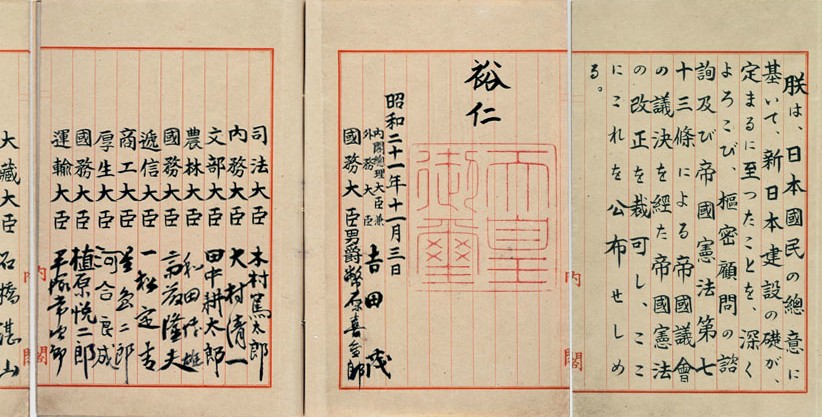 朕は、日本國民の總意に
基いて、新日本建設の礎が、
定まるに至つたことを、深く
よろこび、樞密顧問の諮
詢及び帝國憲法第七
十三條による帝國議會
の議決を経た帝國憲法
の改正を裁可し、ここ
にこれを公布せしめ
る。
内閣
裕仁
天皇御璽
昭和二十一年十一月三日
内閣總理大臣兼
外務大臣 吉田茂
國務大臣男爵幣原喜重郎
司法大臣 木村篤太郎
内務大臣 大村清一
文部大臣 田中耕太郎
農林大臣 和田博雄
國務大臣 斎藤隆夫
逓信大臣 一松定吉
商工大臣 星島二郎
厚生大臣 河合良成
國務大臣 植原悦二郎
運輸大臣 平塚常次郎
内閣
大藏大臣 石橋湛山